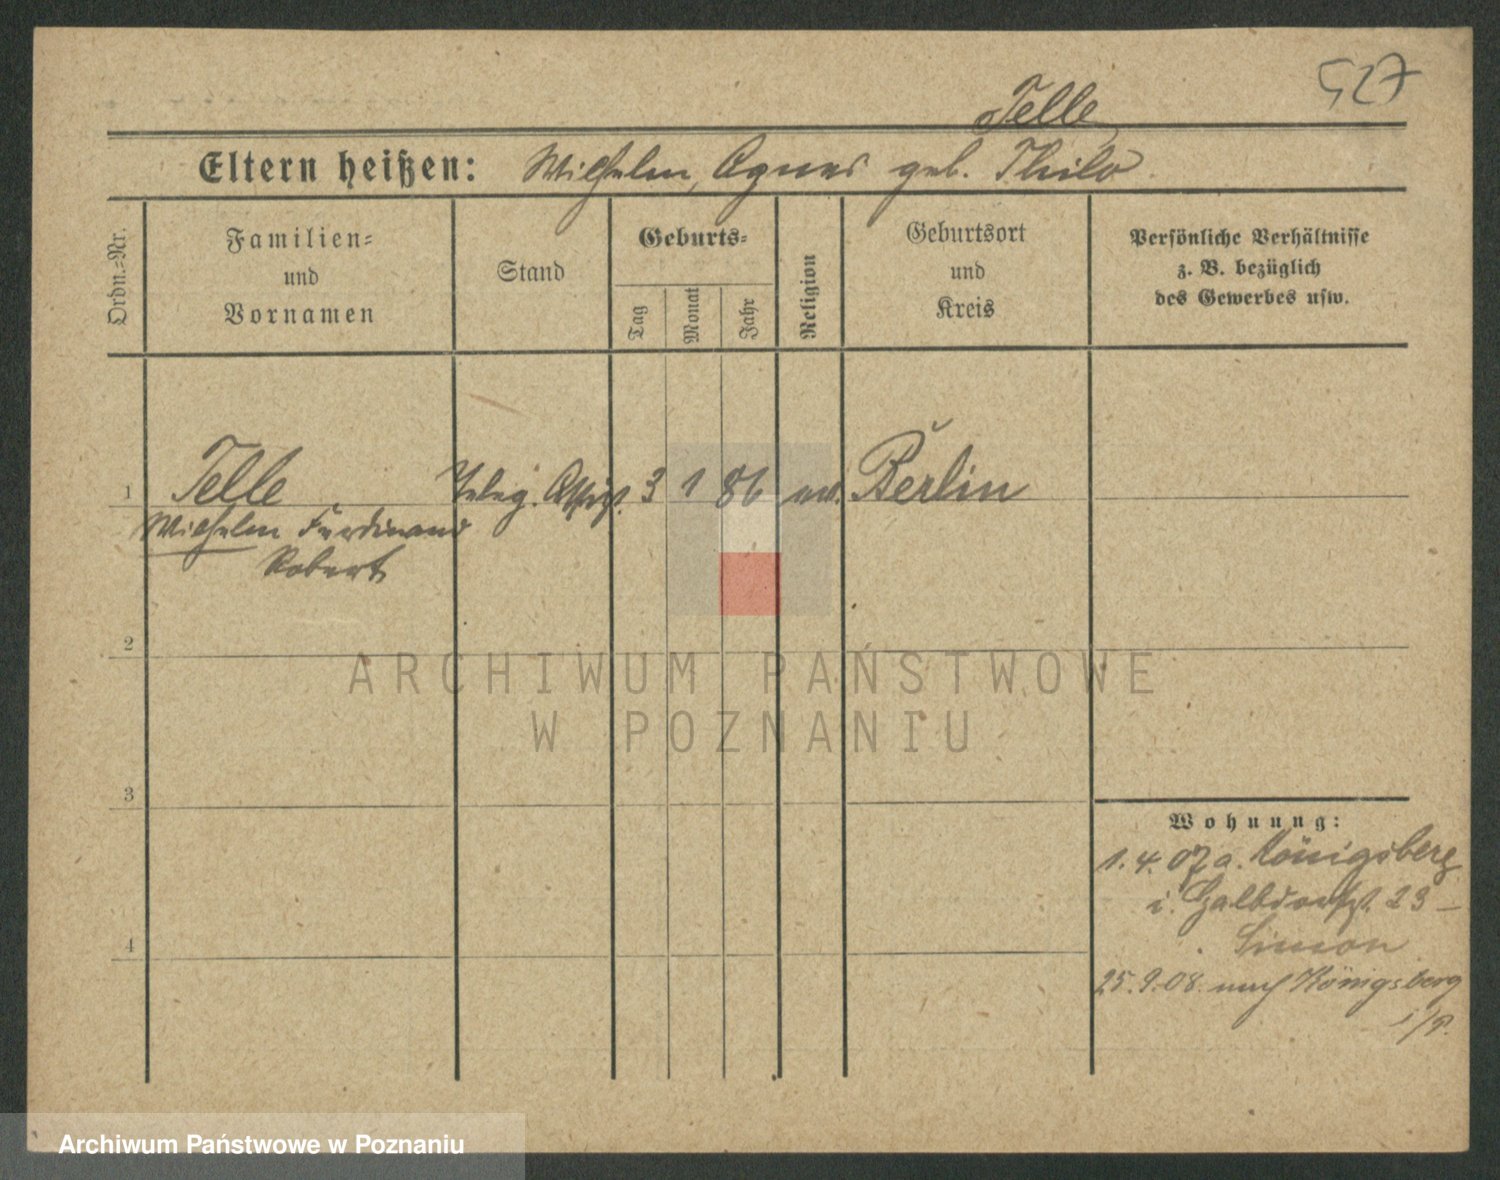 527
Telle
Eltern heißen: Wilhelm, Agnes geb. Thilo
Ordn.-Nr.
Familien-
und
Vornamen
Stand
Geburts-
Tag
Monat
Jahr
Religion
Geburtsort
und
Kreis
Persönliche Verhältnisse
z. B. bezüglich
des Gewerbes usw.
1 Telle Teleg. Assist. 3 1 86 ev. Berlin
Wilhelm Ferdinand
Robert
2
3
4
Wohnung:
1. 4. 07 a. Königsberg
i. 23 –
Simon
25. 9. 08. nach Königsberg
i/P.
ARCHIWUM PAŃSTWOWE
W POZNANIU
Archiwum Państwowe w Poznaniu